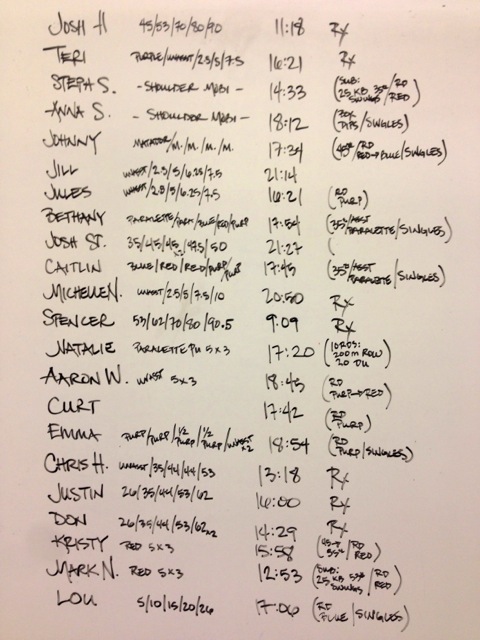 JOSH H 45/53/70/80/90 11:18 RX
TERI PURPLE/UNASST/2.5/5/7.5 16:21 RX
STEPH S. -SHOULDER MOBI- 14:33 (SUB: 25 KB 35# SWINGS/RD RED)
ANNA S. -SHOULDER MOBI- 18:12 (BOX DIPS/SINGLES)
JOHNNY MATADOR/M./M./M./M. 17:34 (45#/RD RED→BLUE/SINGLES)
JILL UNASST/2.5/5/6.25/7.5 21:14
JULES UNASST/2.5/5/6.25/7.5 16:21 (RD PURP)
BETHANY PARALETTE/PART/BLUE/RED/PURP 17:54 (35#/ASST PARALETTE/SINGLES)
JOSH ST. 35/45/45/47.5/50 21:27 (
CAITLIN BLUE/RED/RED/PURP/PURP 17:45 (35#/ASST PARALETTE/SINGLES)
MICHELLE N. UNASST/2.5/5/7.5/10 20:50 RX
SPENCER 53/62/70/80/90.5 9:09 RX
NATALIE PARALETTE PU 5x3 17:20 (10 RDS: 200m ROW 20 DU)
AARON W. UNASST 5x3 18:45 (RD PURP→RED)
CURT 17:42 (RD PURP)
EMMA PURP/PURP/1/2 PURP/1/2 PURP/UNASST x2 18:54 (RD PURP/SINGLES)
CHRIS H. UNASST/35/44/44/53 13:18 RX
JUSTIN 26/35/44/53/62 16:00 RX
DON 26/35/44/53/62x2 14:29 RX
KRISTY RED 5x3 15:58 (45→35#/RD RED)
MARK N. RED 5x3 12:53 (SUB: 25 KB 53# SWINGS/RD RED)
LOU 5/10/15/20/26 17:06 (RD BLUE/SINGLES)